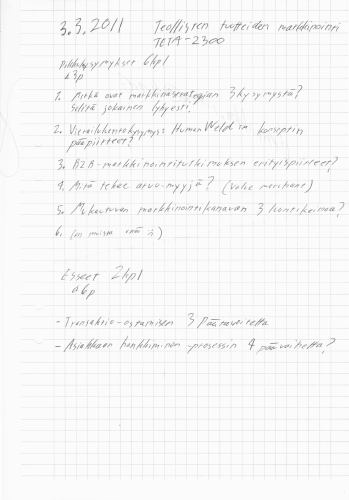 3.3.2011 Teollisten tuotteiden markkinointi
TETA-2300
Pikkukysymykset 6kpl
a 3p
1. Mitkä ovat markkinastrategian 3 kysymystä?
Selitä jokainen lyhyesti.
2. Vierailuluentokysymys: Human Weld :in konseptin
pääpiirteet?
3. B2B-markkinointitutkimuksen erityispiirteet?
4. Mitä tekee arvo-myyjä? (value merchant)
5. Mukautuvan markkinointikanavan 3
6. (en muista enää :))
Esseet 2kpl
a 6p
- Transaktio-ostamisen 3 päätavoitetta
- Asiakkaan hankkiminen -prosessin 4 päävaihetta?